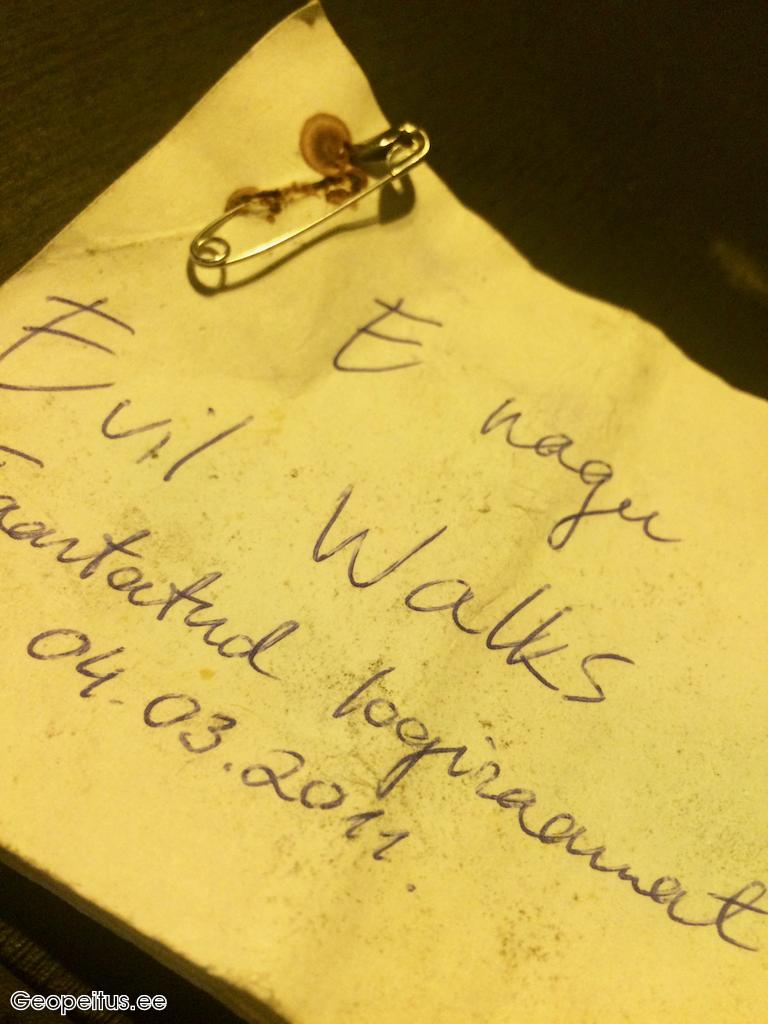 E nagu
Evil Walks
Taastatud logiraamat
04.03.2011.
Geopeitus.ee